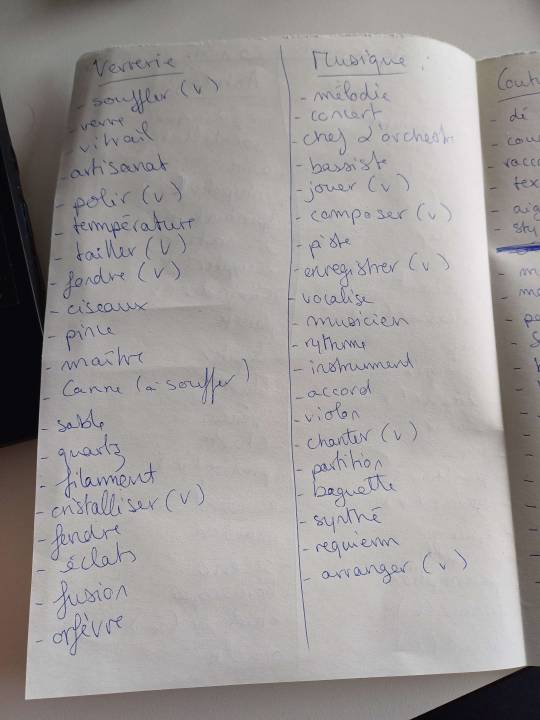 Verrerie
- souffler (v)
- verre
- vitrail
- artisanat
- polir (v)
- température
- tailler (v)
- fondre (v)
- ciseaux
- pince
- maître
- canne (à souffler)
- sable
- quartz
- filamment
- cristalliser (v)
- fendre
- éclats
- fusion
- orfèvre
Musique :
- mélodie
- concert
- chef d'orchestre
- bassiste
- jouer (v)
- composer (v)
- piste
- enregistrer (v)
- vocalise
- musicien
- rythme
- instrument
- accord
- violon
- chanter (v)
- partition
- baguette
- synthé
- requiem
- arranger (v)
- dé